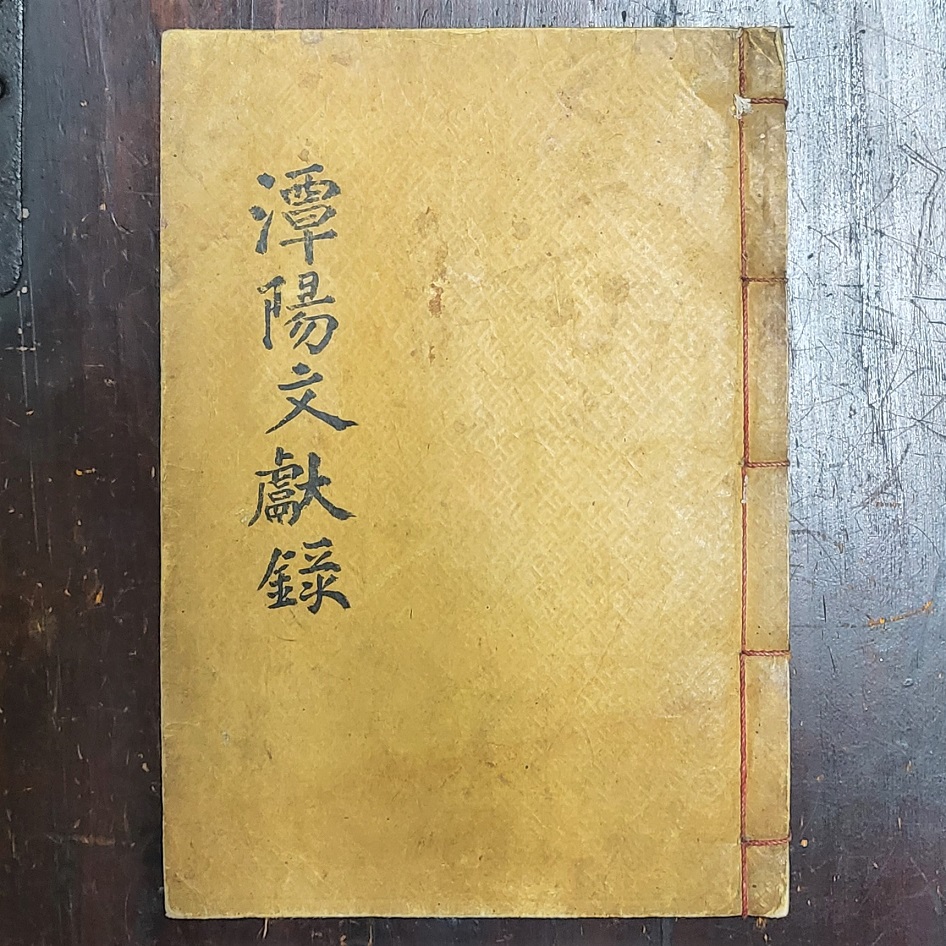 潭陽文獻錄